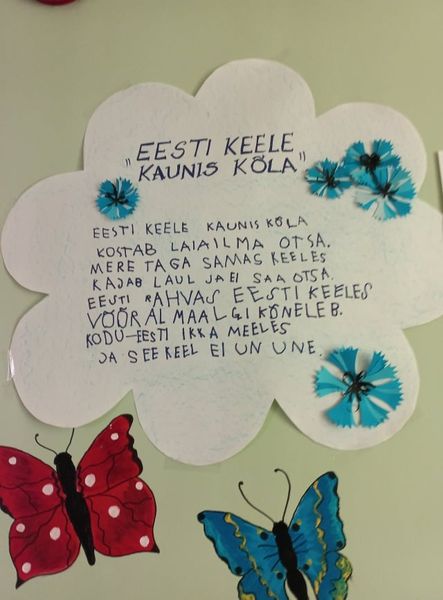 „EESTI KEELE
KAUNIS KÕLA"
EESTI KEELE KAUNIS KÕLA
KOSTAB LAIAILMA OTSA.
MERE TAGA SAMAS KEELES
KAJAB LAUL JA EI SAA OTSA.
EESTI RAHVAS EESTI KEELES
VÕÕRALMAALGI KÕNELEB.
KODU-EESTI IKKA MEELES
JA SEE KEEL EI UN UNE.